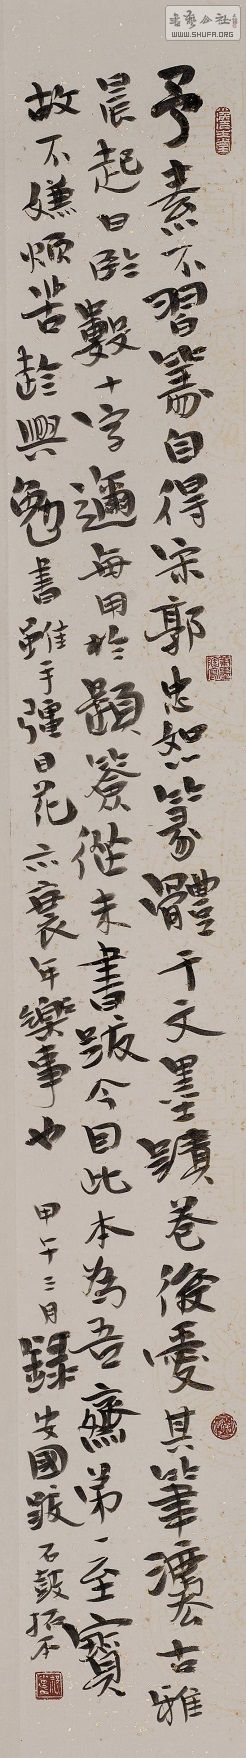 予素不習篆自得宋郭忠恕篆體千文墨蹟卷後愛其筆濃古雅
晨起日臨數十字適每用於題簽從未書跋今因此本為吾齋第一至寶
故不嫌煩苦趁興勉書雖手彊目花亦衰年樂事也 甲午三月錄安國跋石鼓拓本
書藝公社
WWW.SHUFA.ORG